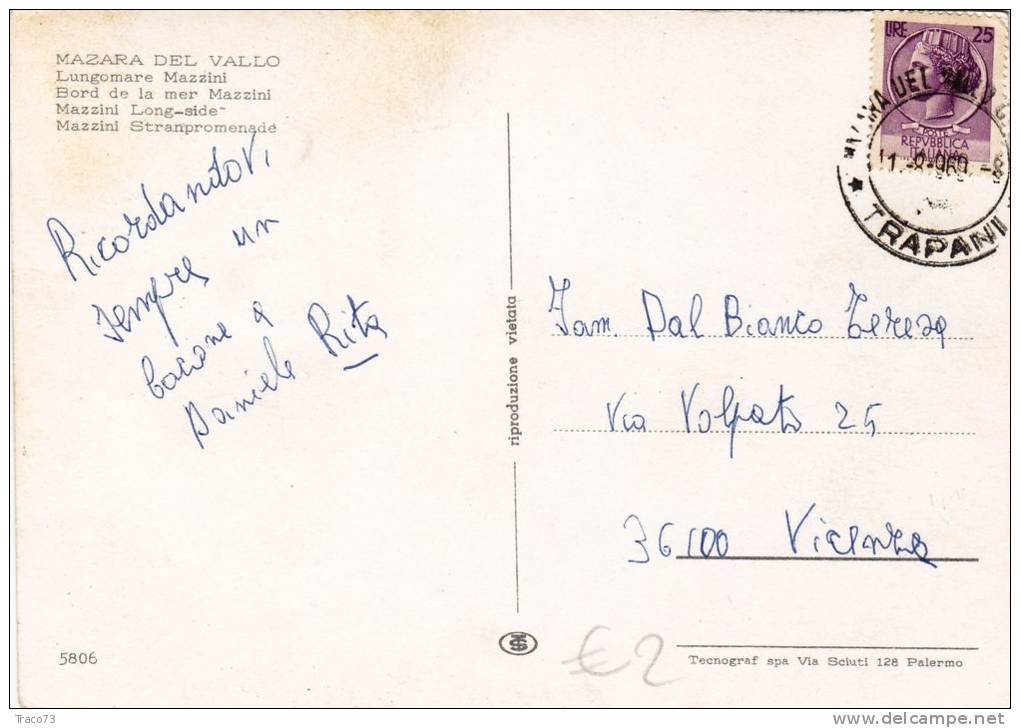 MAZARA DEL VALLO
Lungomare Mazzini
Bord de la mer Mazzini
Mazzini Long-side
Mazzini Stranpromenade
LIRE 25
POSTE
REPVBBLICA
ITALIANA
TRAPANI
Ricordandovi
sempre un
bacione a
Daniele Rita
riproduzione vietata
Fam. Dal Bianco Teresa
Via Volpato 25
36100 Vicenza
€2
5806
Tecnograf spa Via Sciuti 128 Palermo
Traco73
delcampe.net